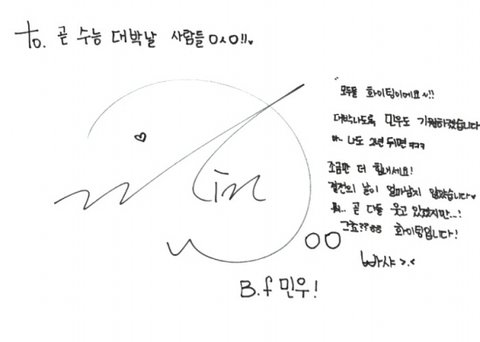 to. 곧 수능 대박날 사람들 ㅇㅅㅇ!!♥
모두들 화이팅이에요~!!
대박나도록 민우도 기원하겠습니다
아 나도 2년 뒤면 ㅋㅋㅋ
조금만 더 힘내세요!
결전의 날이 얼마남지 않았습니다♥
뭐.. 곧 다들 웃고 있겠지만..!
그죠?? 화이팅입니다!
빠샤 >.<
Min
B.f 민우!